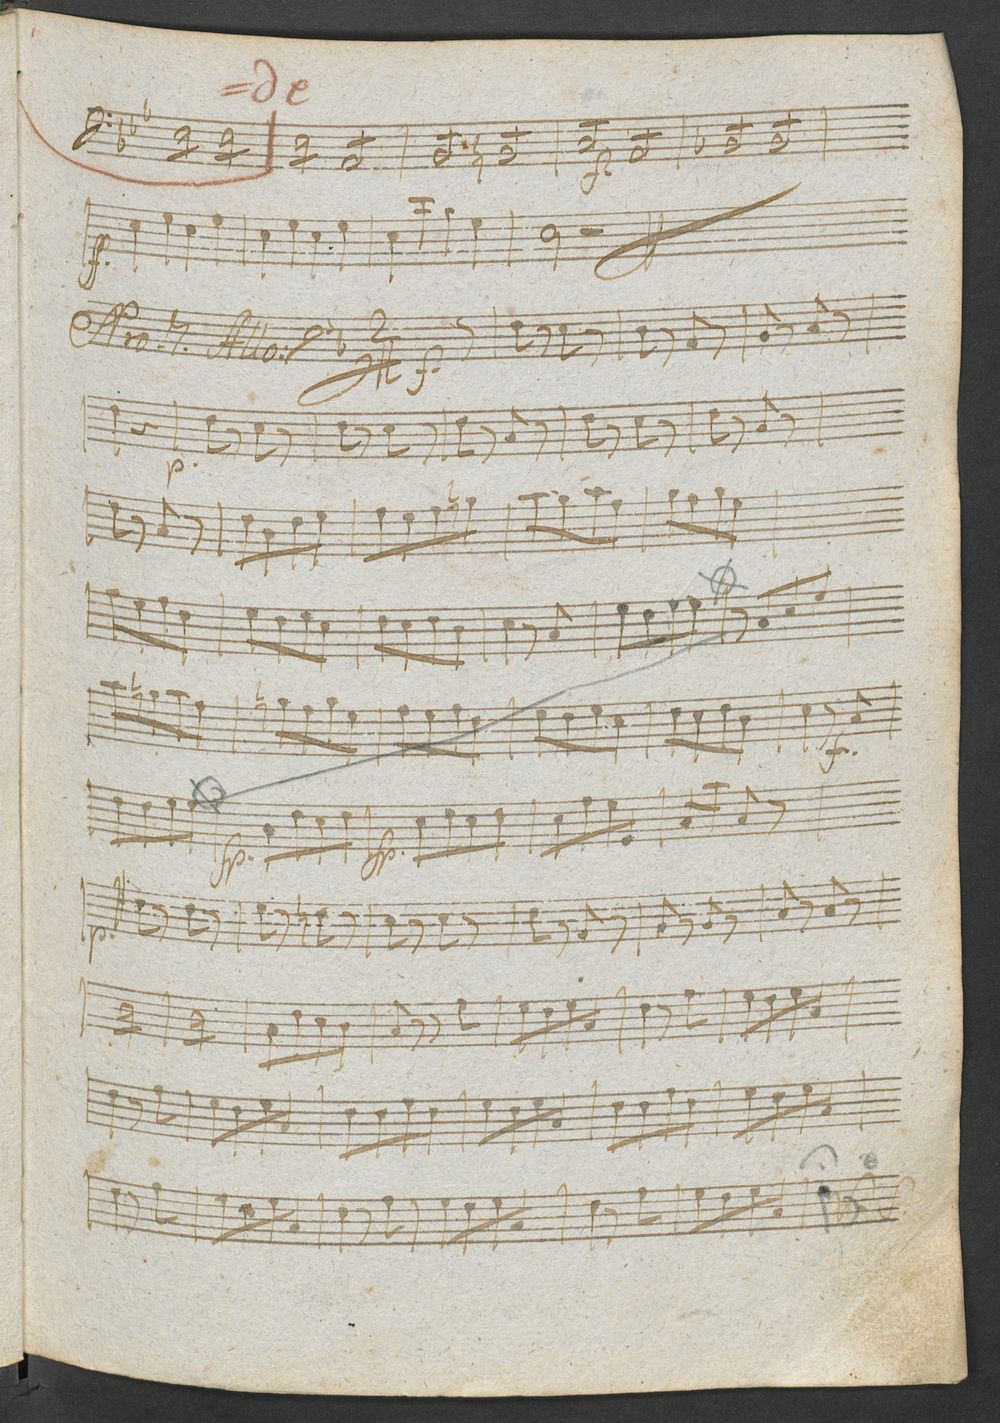 =de
f.
f.
Nro. 7. Allo. 2/4 f.
p.
f.
fp. fp.
p.